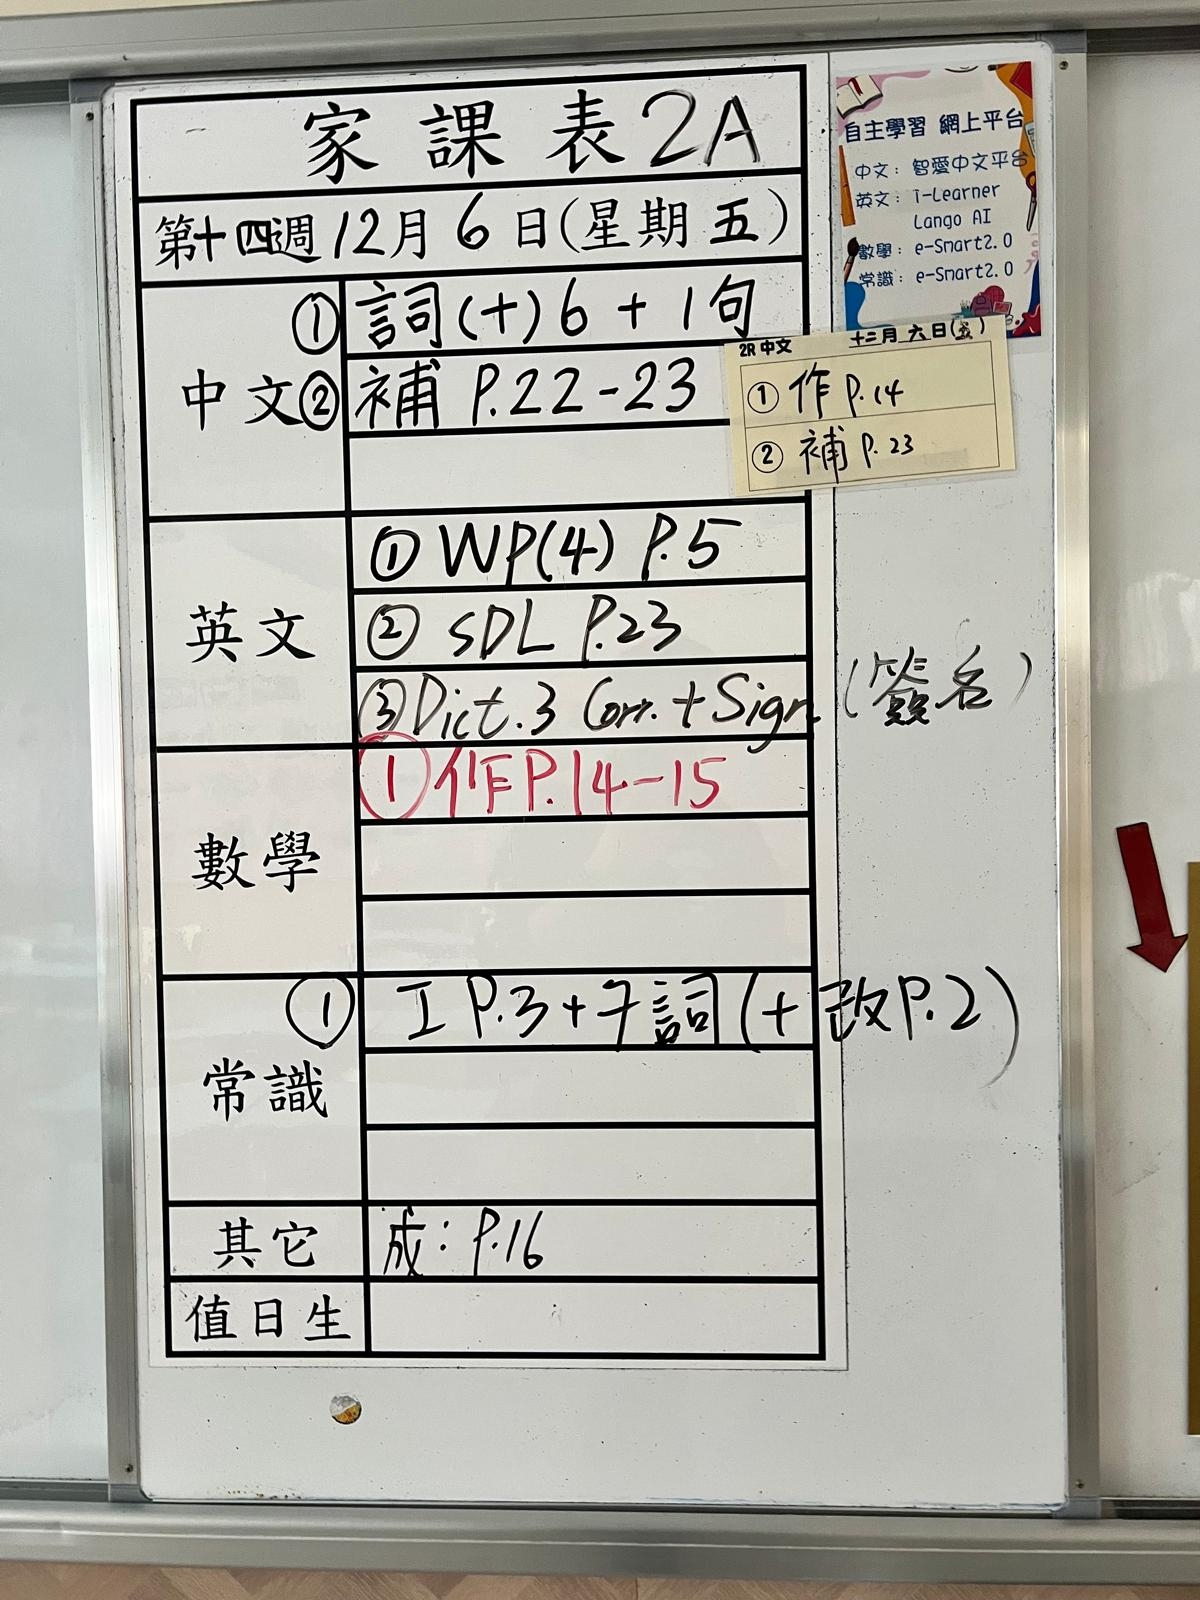 家課表2A
第十四週12月6日(星期五)
中文
① 詞(十)6+1句
② 補 P.22-23
英文
① WP(4) P.5
② SDL P.23
③ Dict.3 Corr.+Sign.(簽名)
數學
① 作P.14-15
常識
① 工 P.3+子詞(+改P.2)
其它
成：P.16
值日生
自主學習 網上平台
中文：智愛中文平台
英文：i-Learner
Lango AI
數學：e-Smart2.0
常識：e-Smart2.0
2R 中文 十二月六日(五)
① 作 P.14
② 補 P.23